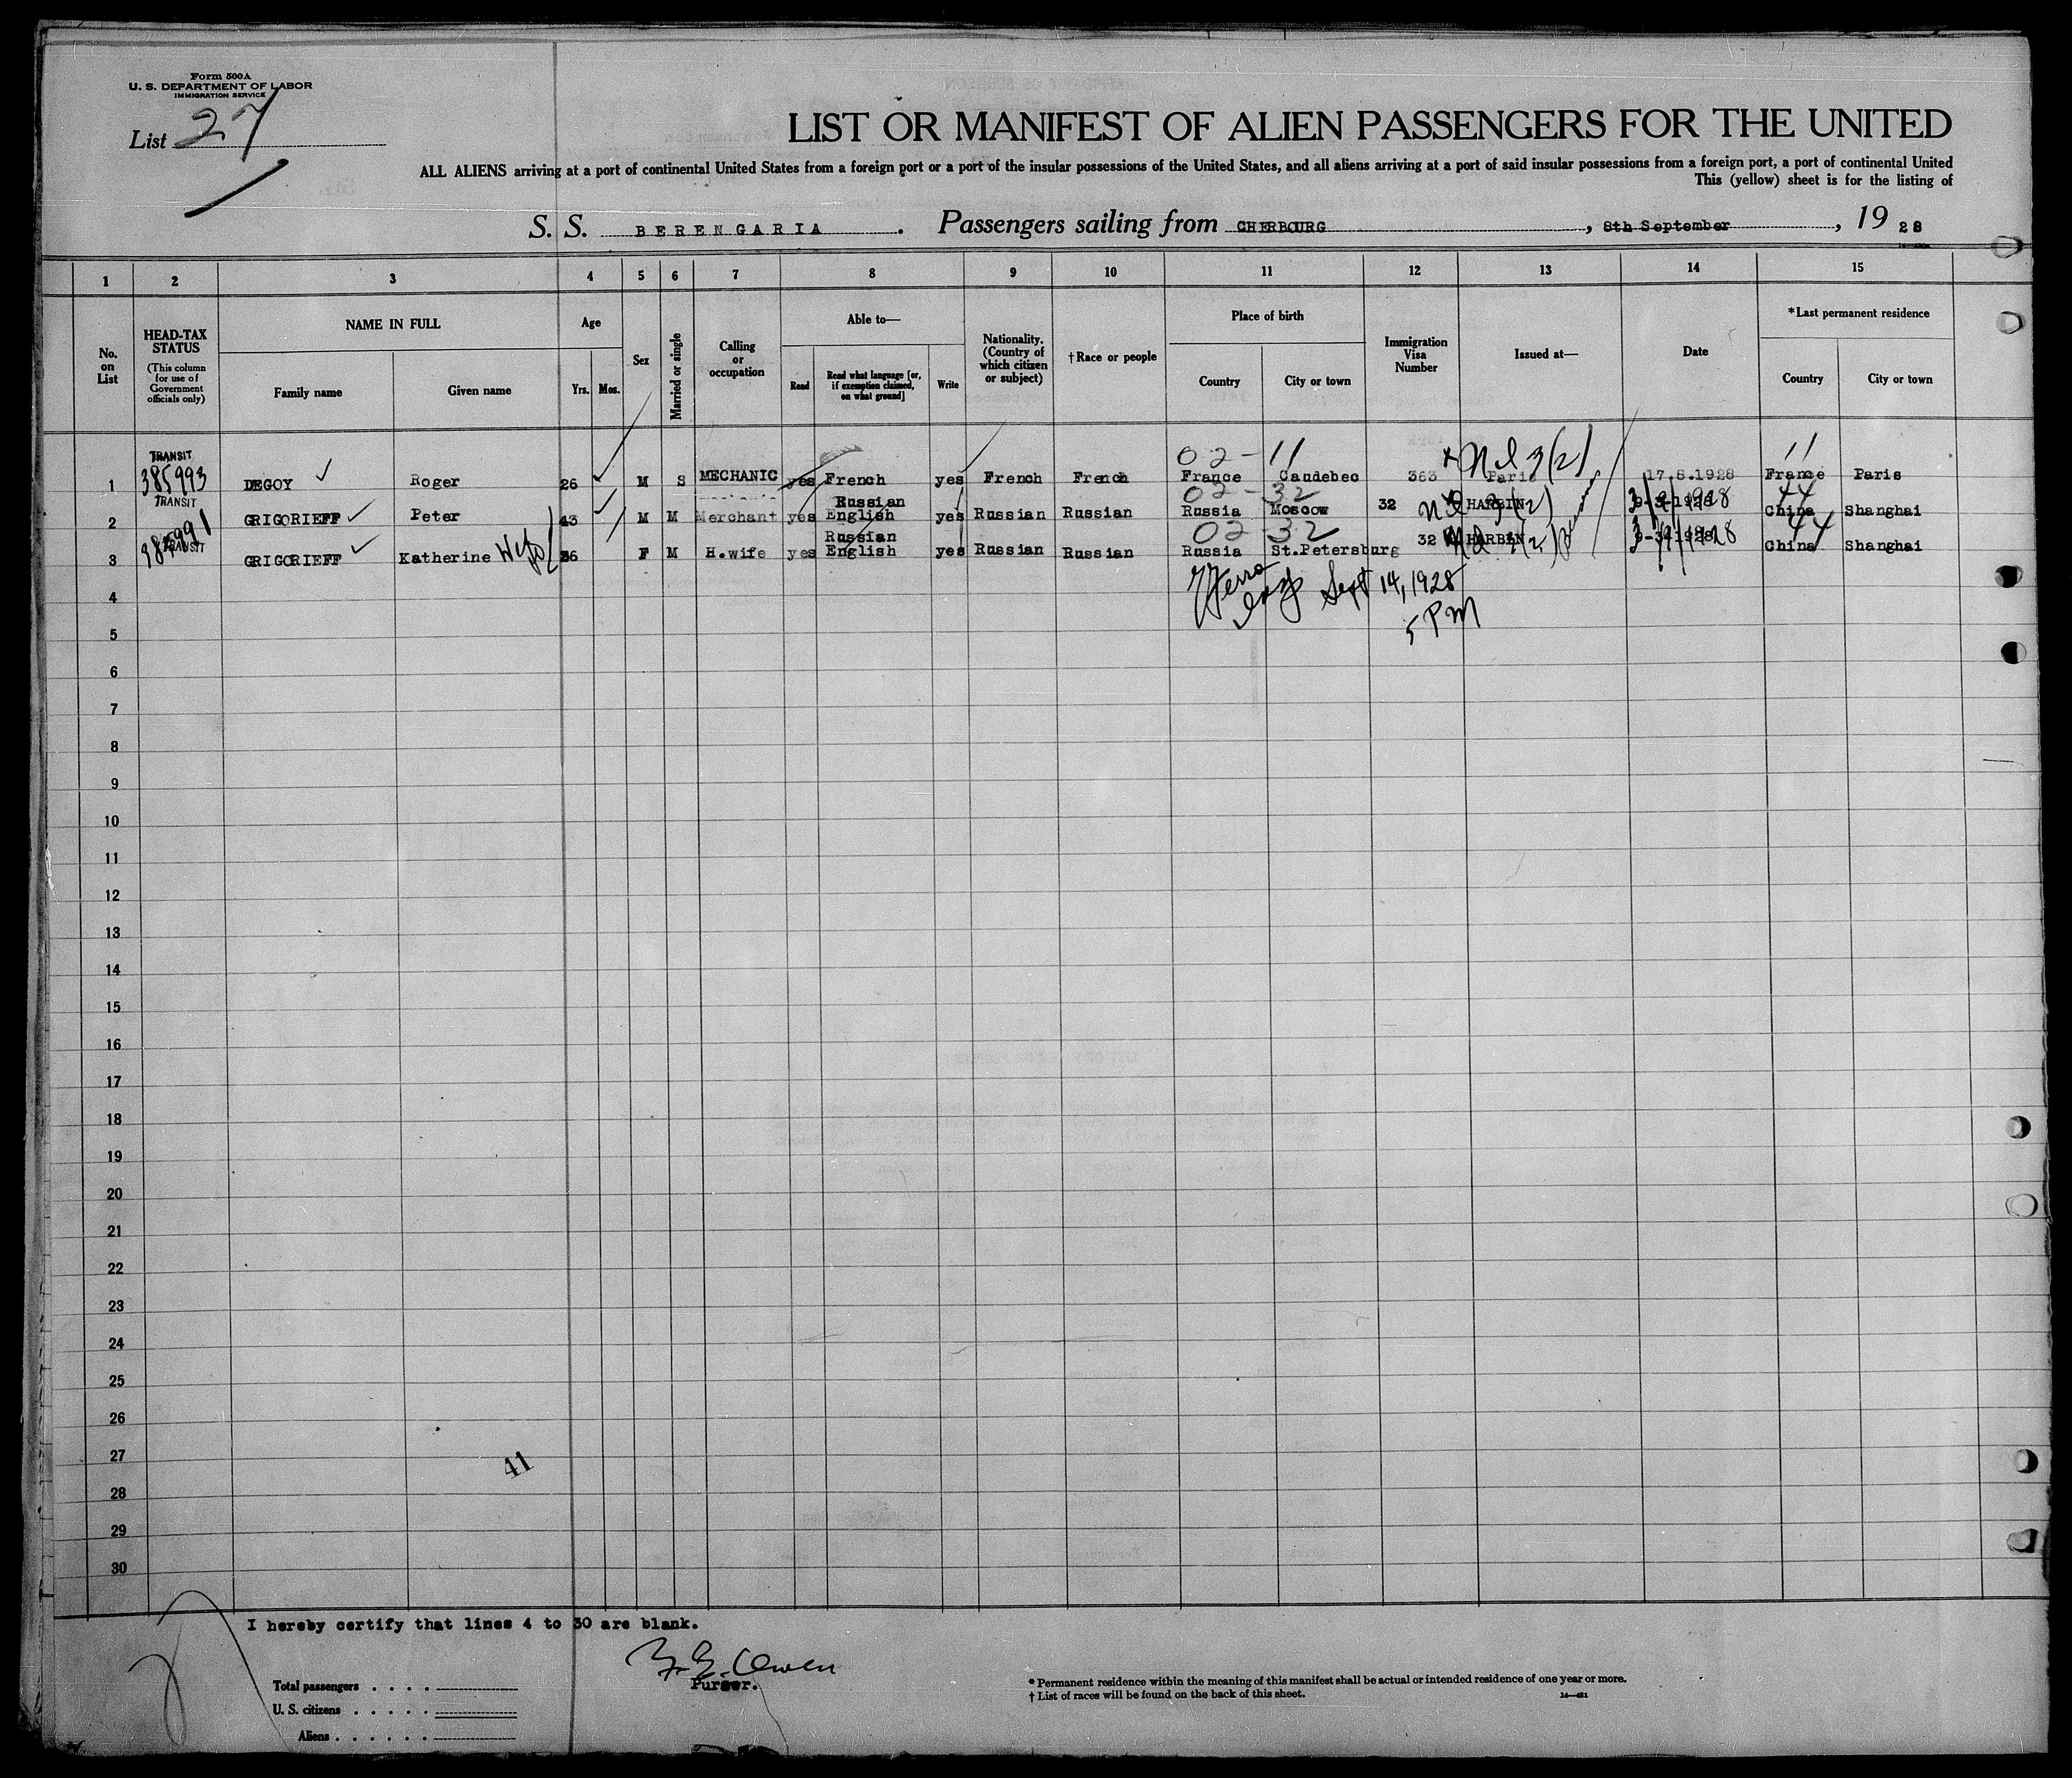 Form 500A
U. S. DEPARTMENT OF LABOR
IMMIGRATION SERVICE
List 27
LIST OR MANIFEST OF ALIEN PASSENGERS FOR THE UNITED
ALL ALIENS arriving at a port of continental United States from a foreign port or a port of the insular possessions of the United States, and all aliens arriving at a port of said insular possessions from a foreign port, a port of continental United
This (yellow) sheet is for the listing of
S. S. BERENGARIA. Passengers sailing from CHERBOURG, 8th September, 19 28
1 2 3 4 5 6 7 8 9 10 11 12 13 14 15
No. on List
HEAD-TAX STATUS (This column for use of Government officials only)
NAME IN FULL
Family name
Given name
Age
Yrs.
Mos.
Sex
Married or single
Calling or occupation
Able to—
Read
Read what language [or, if exemption claimed, on what ground]
Write
Nationality. (Country of which citizen or subject)
†Race or people
Place of birth
Country
City or town
Immigration Visa Number
Issued at—
Date
*Last permanent residence
Country
City or town
TRANSIT 02-11 11
1 385993 DEGOY Roger 26 M S MECHANIC yes French yes French French France Caudebec 363 Paris 3(2) 17.8.1928 France Paris
TRANSIT Russian 02-32 44
2 GRIGORIEFF Peter 43 M M Merchant yes English yes Russian Russian Russia Moscow 32 HARBIN 3(2) China Shanghai
TRANSIT Russian 02 32 44
3 GRIGORIEFF Katherine Wife 36 F M H.wife yes English yes Russian Russian Russia St.Petersburg 32 HARBIN China Shanghai
4 Sept 14, 1928
5 5 PM
6
7
8
9
10
11
12
13
14
15
16
17
18
19
20
21
22
23
24
25
26
27
41
28
29
30
I hereby certify that lines 4 to 30 are blank.
Owen
Purser.
Total passengers . . . .
U. S. citizens . . . . .
Aliens . . . . . .
* Permanent residence within the meaning of this manifest shall be actual or intended residence of one year or more.
† List of races will be found on the back of this sheet.